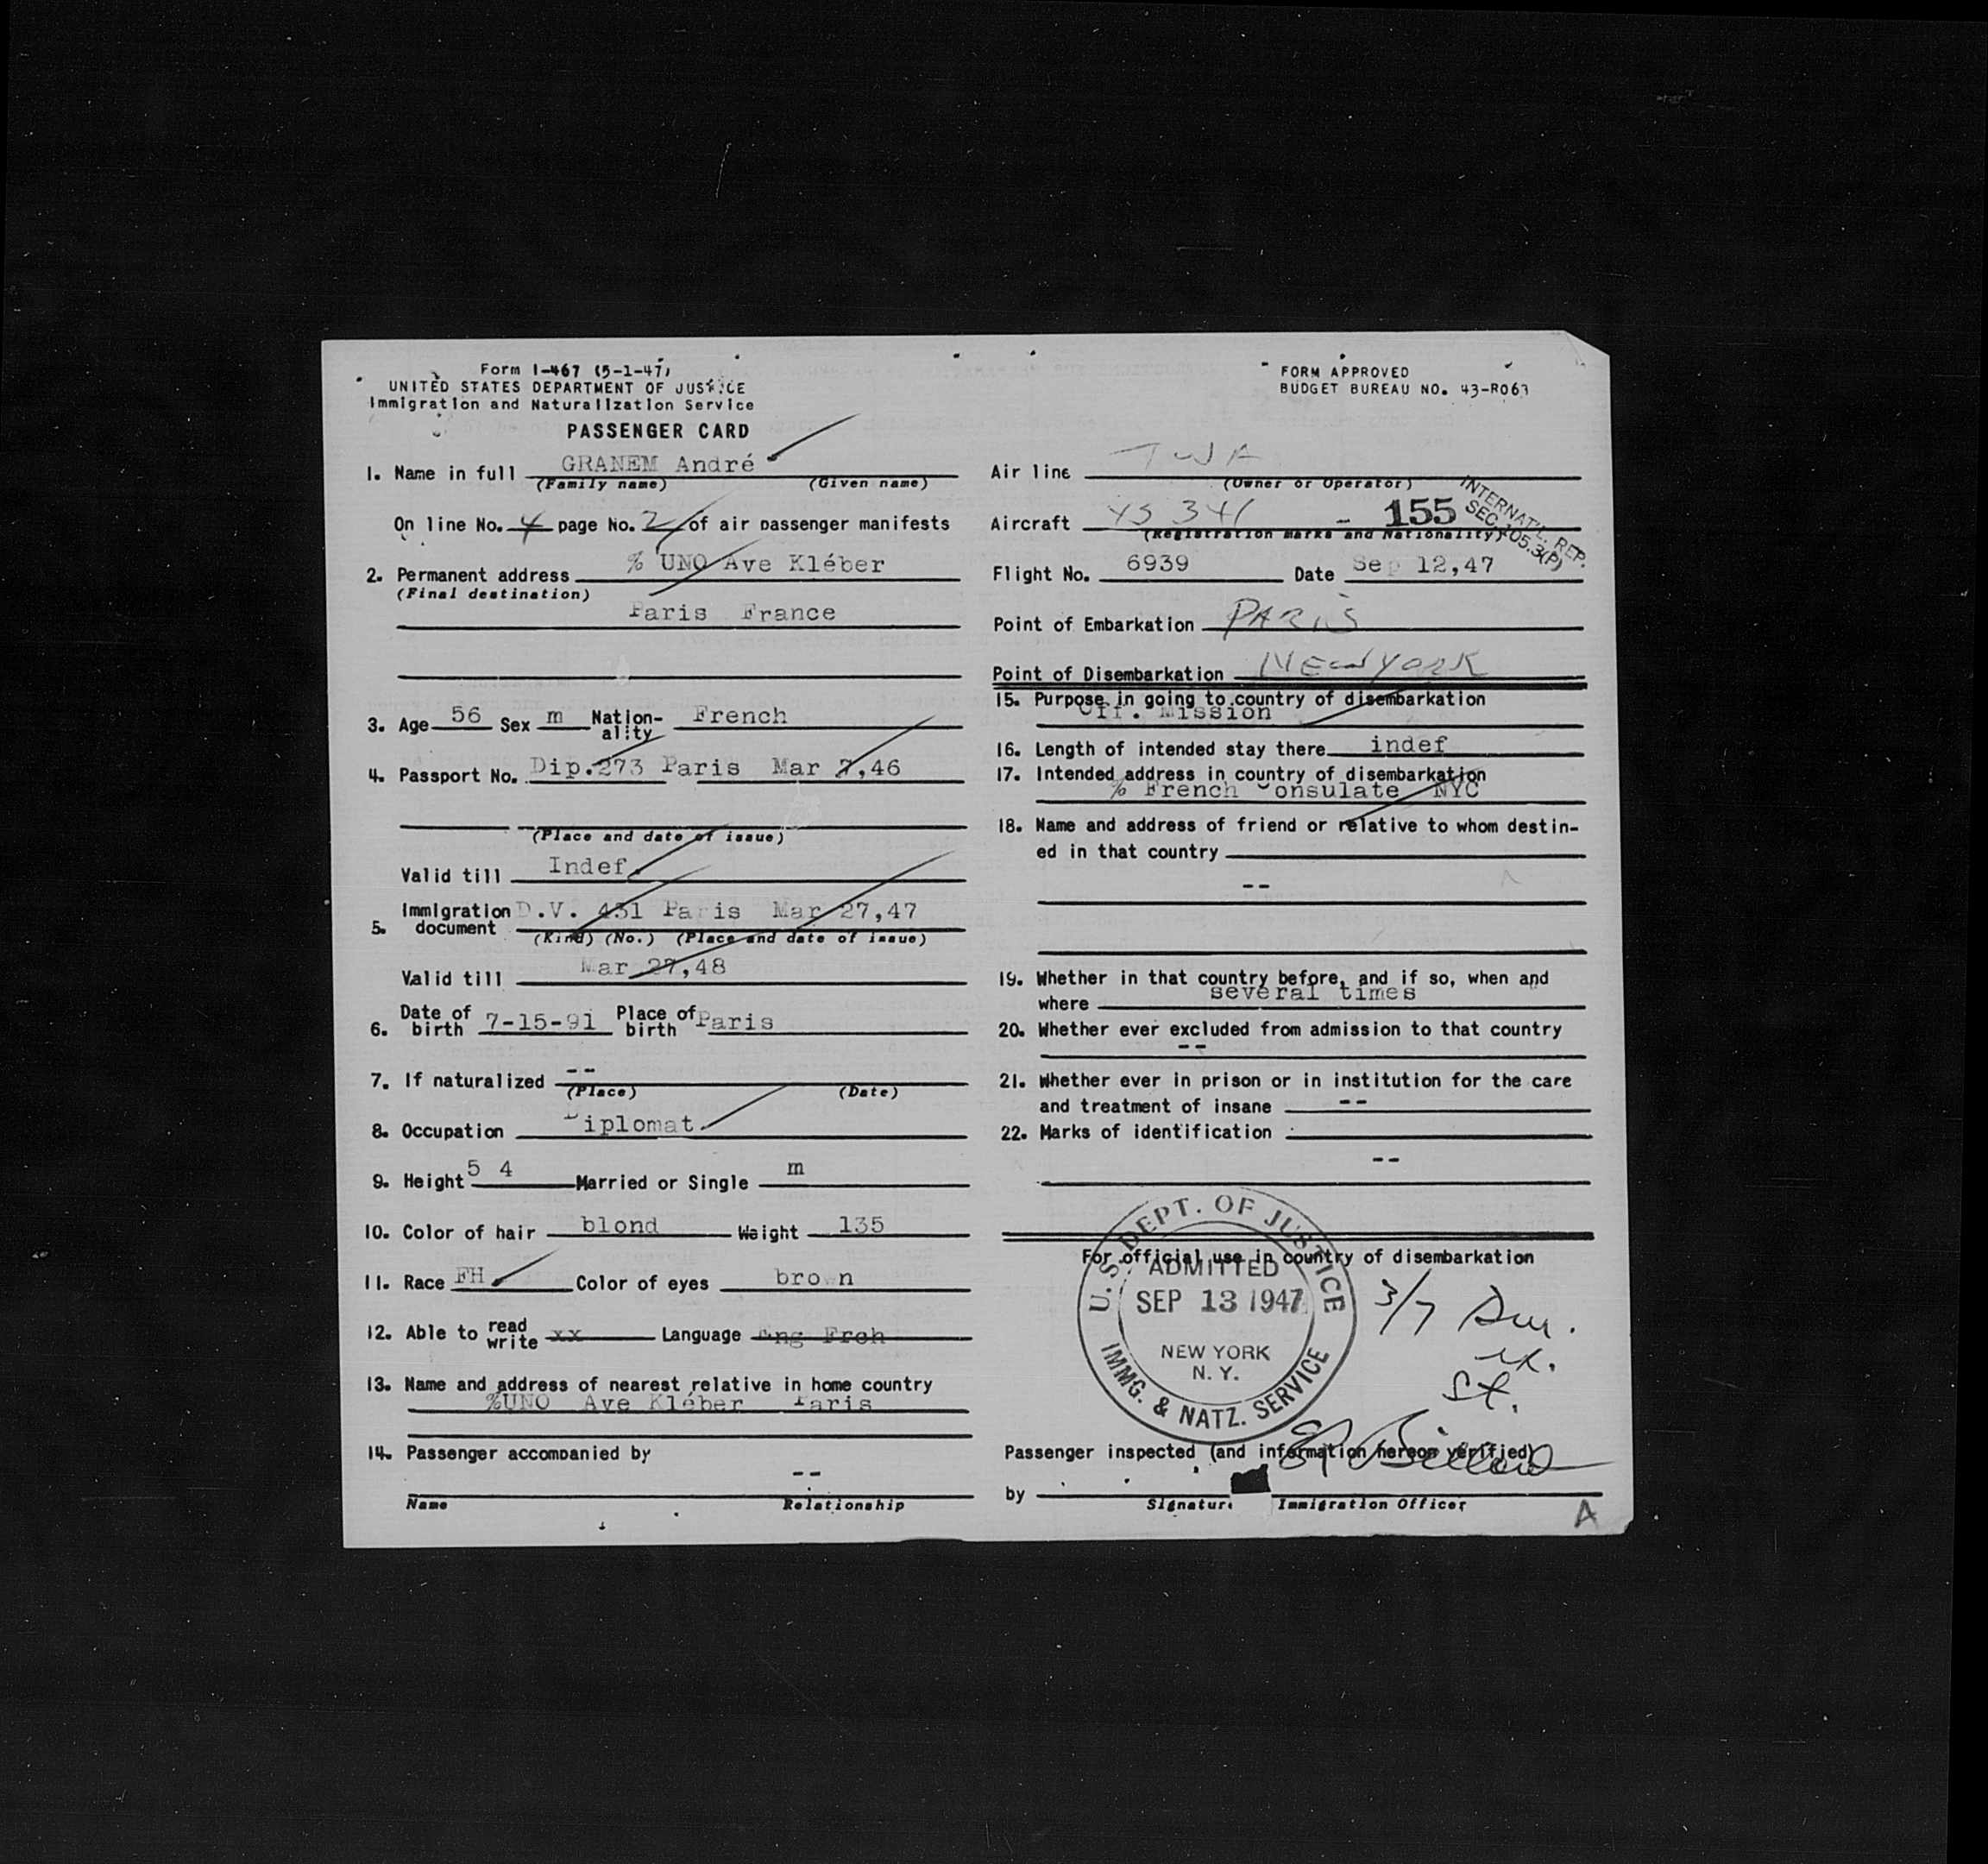 Form I-467 (5-1-47)
UNITED STATES DEPARTMENT OF JUSTICE
Immigration and Naturalization Service
PASSENGER CARD
FORM APPROVED
BUDGET BUREAU NO. 43-R063
1. Name in full GRANEM André
(Family name) (Given name)
On line No. 4 page No. 2 of air passenger manifests
2. Permanent address % UNO Ave Kléber
(Final destination)
Paris France
3. Age 56 Sex m Nation-ality French
4. Passport No. Dip.273 Paris Mar 7,46
(Place and date of issue)
Valid till Indef
5. Immigration document D.V. 431 Paris Mar 27,47
(Kind) (No.) (Place and date of issue)
Valid till Mar 27,48
6. Date of birth 7-15-91 Place of birth Paris
7. If naturalized --
(Place) (Date)
8. Occupation Diplomat
9. Height 5 4 Married or Single m
10. Color of hair blond Weight 135
11. Race FH Color of eyes brown
12. Able to read write xx Language Eng Frch
13. Name and address of nearest relative in home country
%UNO Ave Kléber Paris
14. Passenger accompanied by
--
Name Relationship
Air line TWA
(Owner or Operator)
Aircraft YS 341 - 155
(Registration marks and Nationality)
INTERNAT'L. REP.
SEC. 105.3(P)
Flight No. 6939 Date Sep 12,47
Point of Embarkation PARIS
Point of Disembarkation NEW YORK
15. Purpose in going to country of disembarkation
Off. Mission
16. Length of intended stay there indef
17. Intended address in country of disembarkation
% French Consulate NYC
18. Name and address of friend or relative to whom destin-
ed in that country
--
19. Whether in that country before, and if so, when and
where several times
20. Whether ever excluded from admission to that country
--
21. Whether ever in prison or in institution for the care
and treatment of insane --
22. Marks of identification
--
For official use in country of disembarkation
U.S. DEPT. OF JUSTICE
ADMITTED
SEP 13 1947
NEW YORK
N. Y.
IMMG. & NATZ. SERVICE
3/7 Dur.
St.
Passenger inspected (and information hereon verified)
by
Signature Immigration Officer
A